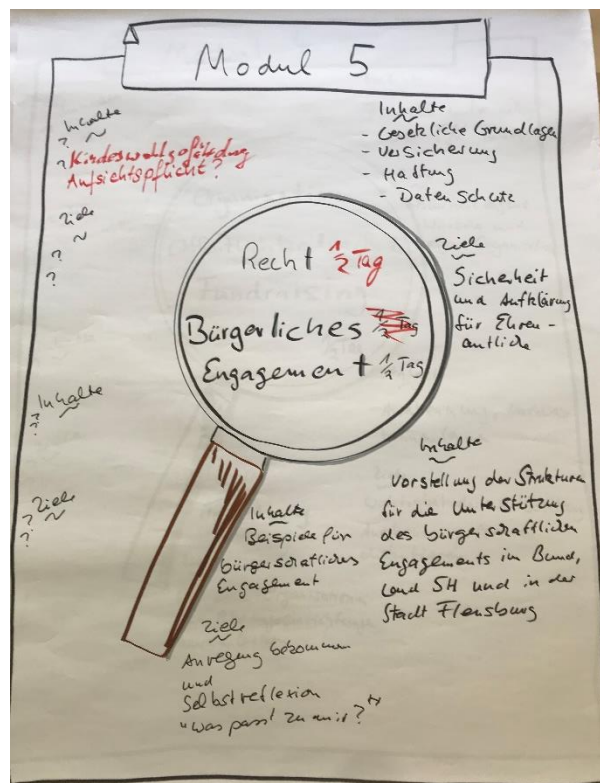 Modul 5
Inhalte
?
? Kindeswohlgefährdung
Aufsichtspflicht?
Ziele
?
?
Inhalte
- Gesetzliche Grundlagen
- Versicherung
- Haftung
- Datenschutz
Ziele
Sicherheit
und Aufklärung
für Ehren-
amtliche
Recht 1/2 Tag
Bürgerliches
Engagement 1/2 Tag
Inhalte
??
Ziele
?
?
Inhalte
Vorstellung der Strukturen
für die Unterstützung
des bürgerschaftlichen
Engagements im Bund,
Land SH und in der
Stadt Flensburg
Inhalte
Beispiele für
bürgerschaftliches
Engagement
Ziele
Anregung bekommen
und
Selbstreflexion
"Was passt zu mir?"